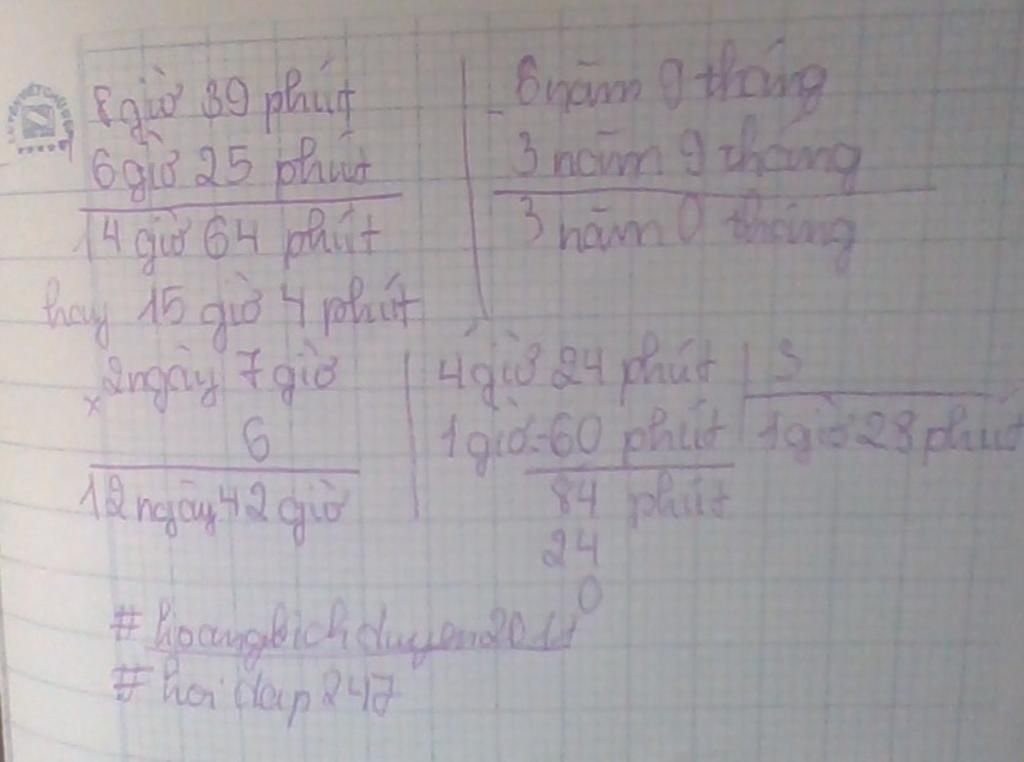 8 giờ 39 phút
6 giờ 25 phút
14 giờ 64 phút
hay 15 giờ 4 phút
- 6 năm 9 tháng
3 năm 9 tháng
3 năm 0 tháng
x 2 ngày 7 giờ
6
12 ngày 42 giờ
4 giờ 24 phút 3
1 giờ = 60 phút 1 giờ 28 phút
84 phút
24
0
#hoangbichduyen2011
#hoidap247